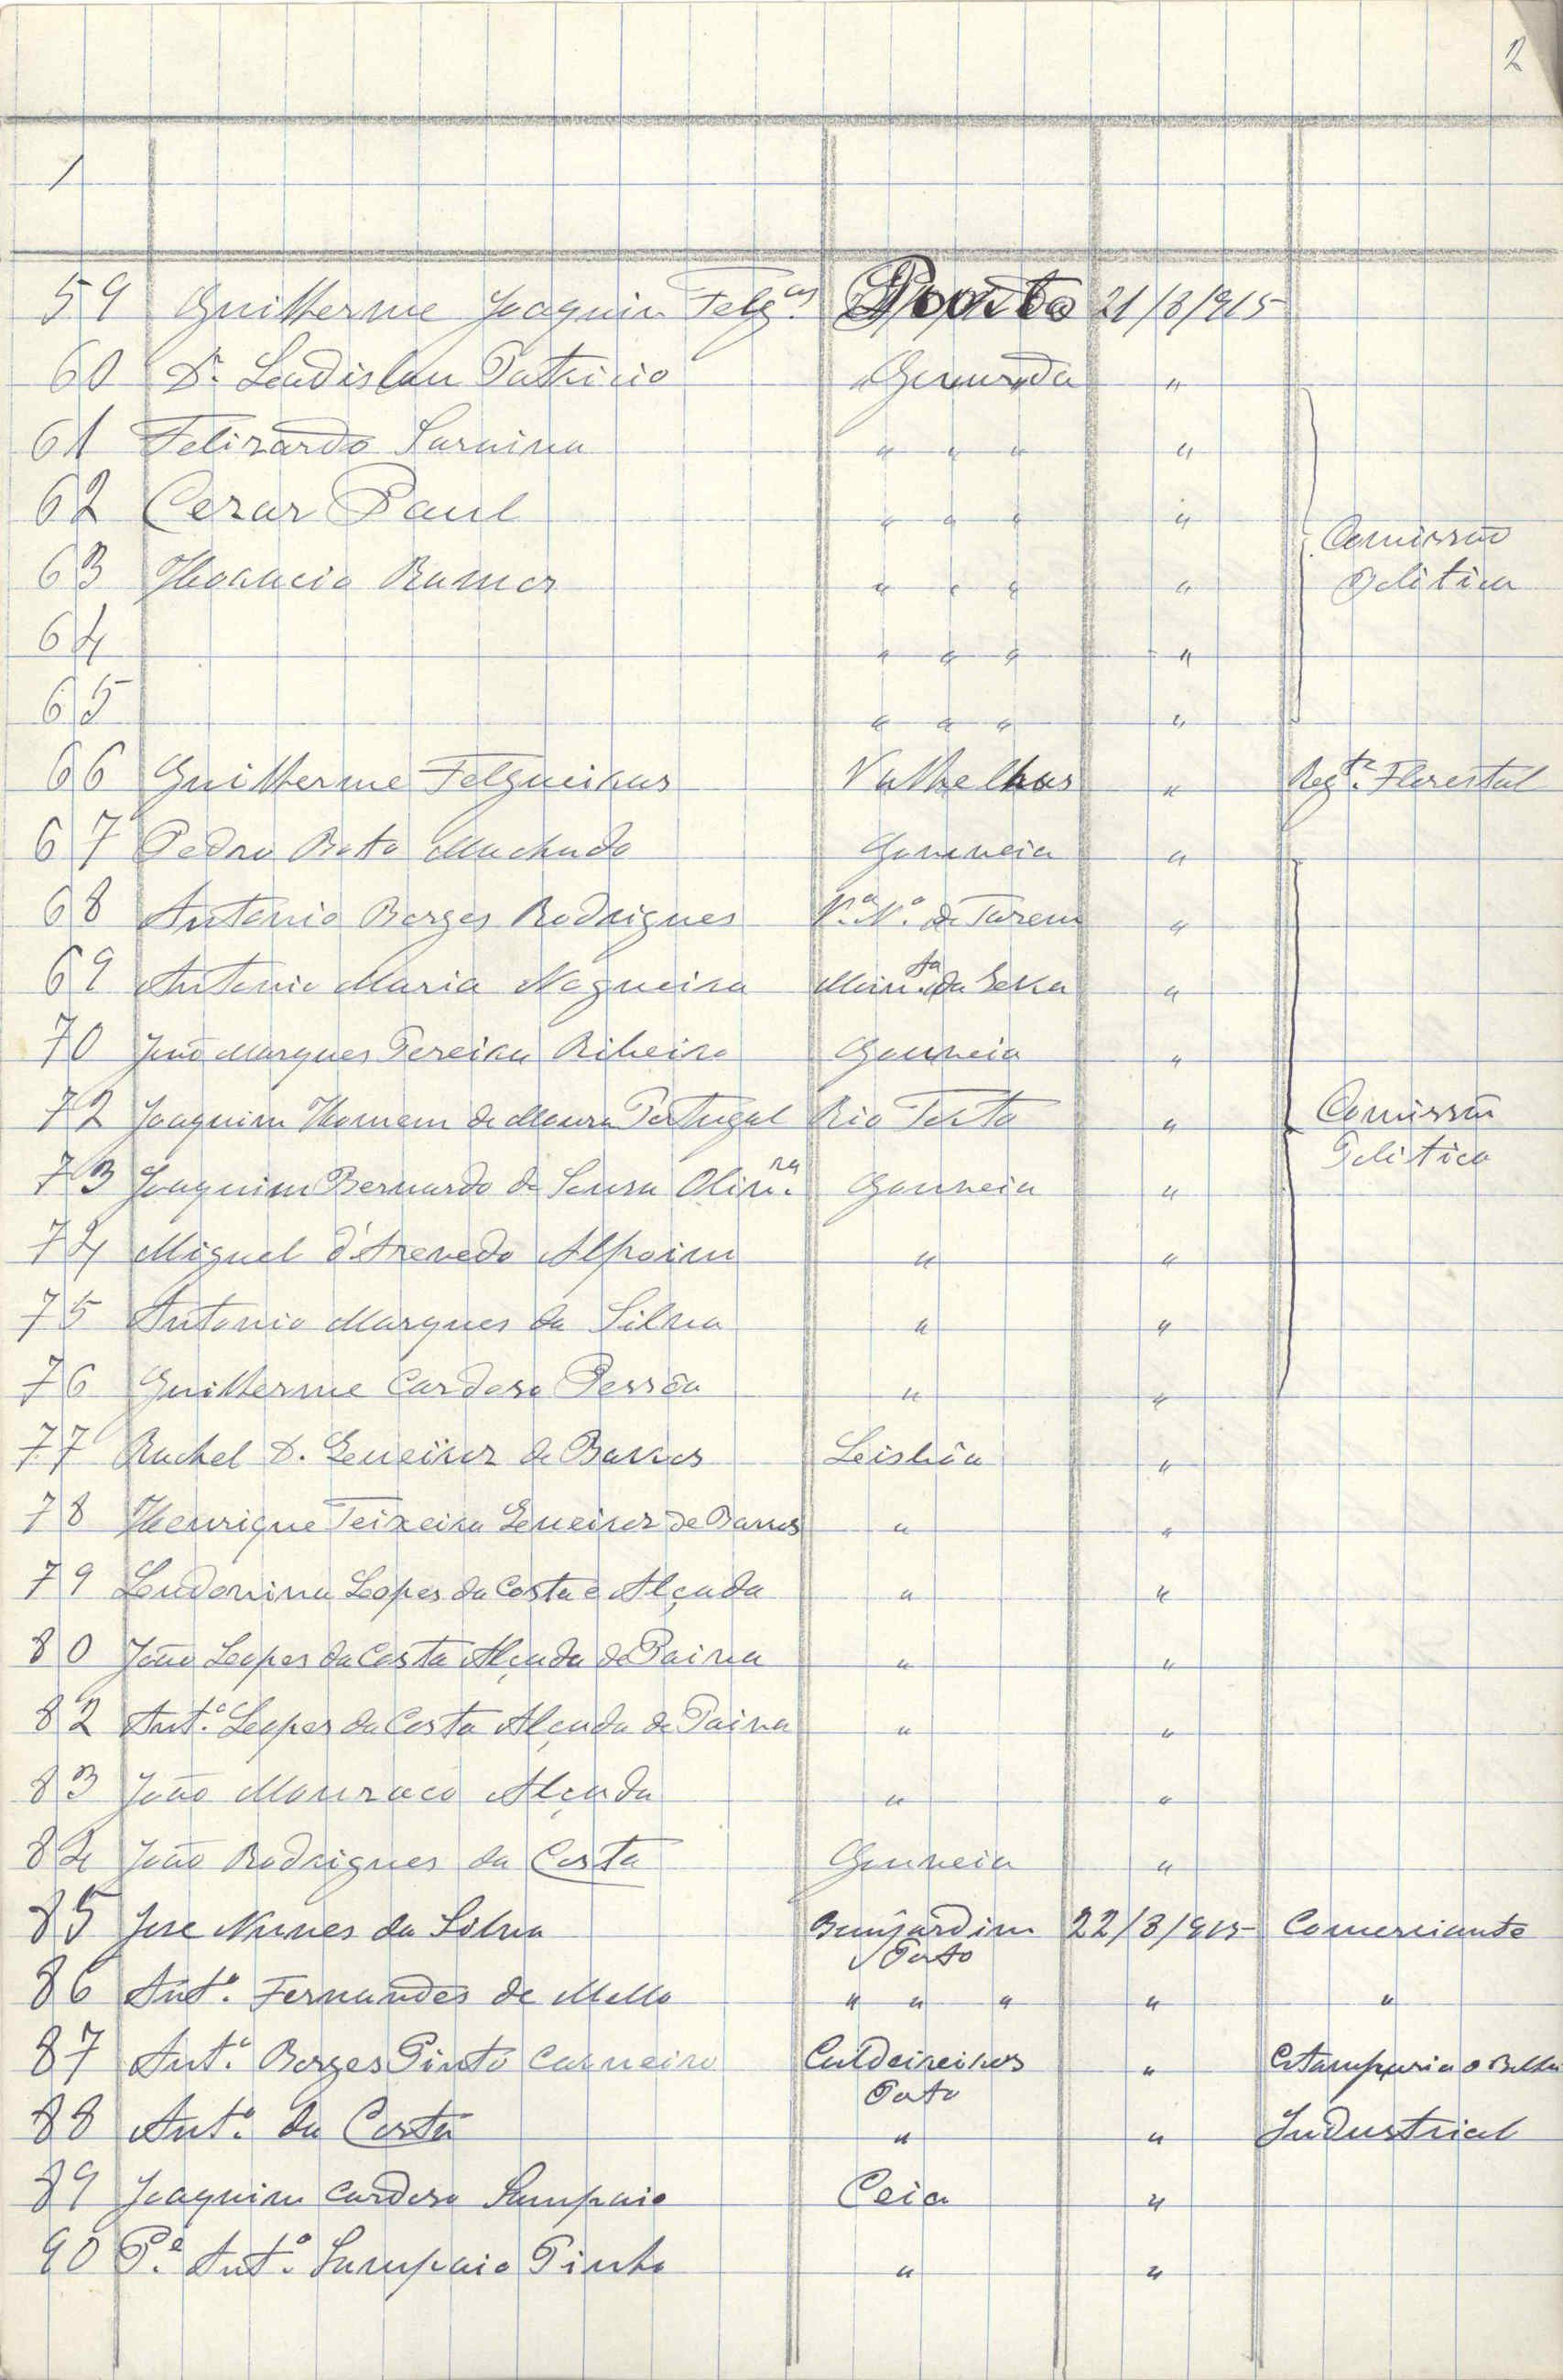 2
1
59 Guilherme Joaquim Felg.as Porto 21/8/915
60 Dr. Ladislau Patricio Guarda "
61 Felizardo Saraiva " " " "
62 Cezar Paul " " " "
Comissão
63 Horacio Ramos " " " "
Politica
64 " " " "
65 " " " "
66 Guilherme Felgueiras Valhelhas " Reg.te Florestal
67 Pedro Boto Machado Gouveia "
68 Antonio Borges Rodrigues V.ª N.ª de Tazem "
69 Antonio Maria Nogueira Moim.ta da Serra "
70 João Marques Pereira Ribeiro Gouveia "
72 Joaquim Homem de Moura Portugal Rio Torto " Comissão
Politica
73 Joaquim Bernardo de Sousa Oliv.ra Gouveia "
74 Miguel d'Azevedo Alpoim " "
75 Antonio Marques da Silva " "
76 Guilherme Cardoso Pessôa " "
77 Rachel D. Queiroz de Barros Leisbôa "
78 Henrique Teixeira Queiroz de Barros " "
79 Ludovina Lopes da Costa e Alçada " "
80 João Lopes da Costa Alçada de Paiva " "
82 Ant.º Lopes da Costa Alçada de Paiva " "
83 João Mouraco Alçada " "
84 João Rodrigues da Costa Gouveia "
85 Jose Nunes da Silva Bomjardim 22/8/915 Comerciante
Porto
86 Ant.º Fernandes de Mello " " " " "
87 Ant.º Borges Pinto Carneiro Caldeireiros " Estamparia o Bolhão
Porto
88 Ant.º da Costa " " Industrial
89 Joaquim Cardoso Sampaio Ceia "
90 P.e Ant.º Sampaio Pinto " "